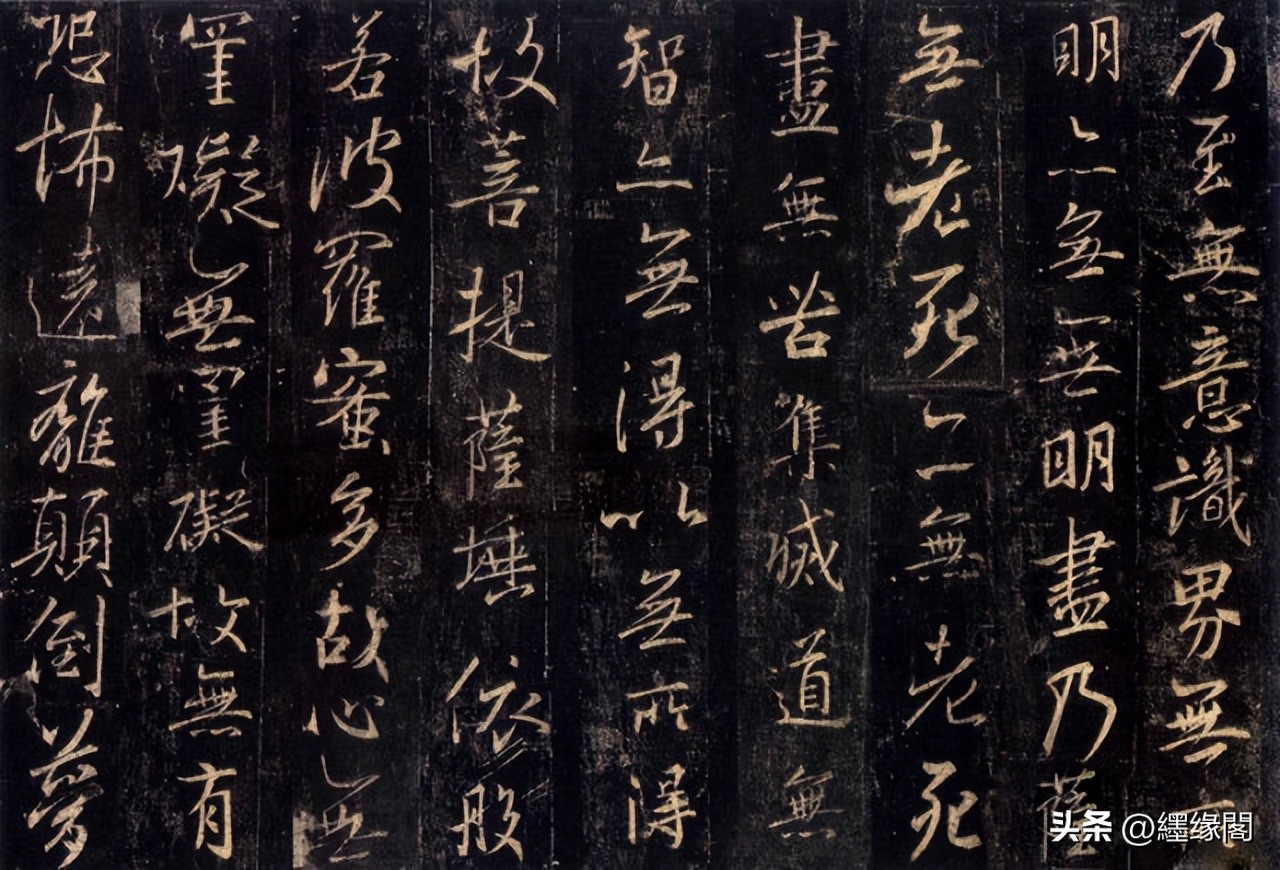 乃至無意識界無
明亦無無明盡乃
無老死亦無老死
盡無苦集滅道無
智亦無得以無所得
故菩提薩埵依般
若波羅蜜多故心無
罣礙無罣礙故無有
恐怖遠離顛倒夢
头条 @纆缘閣